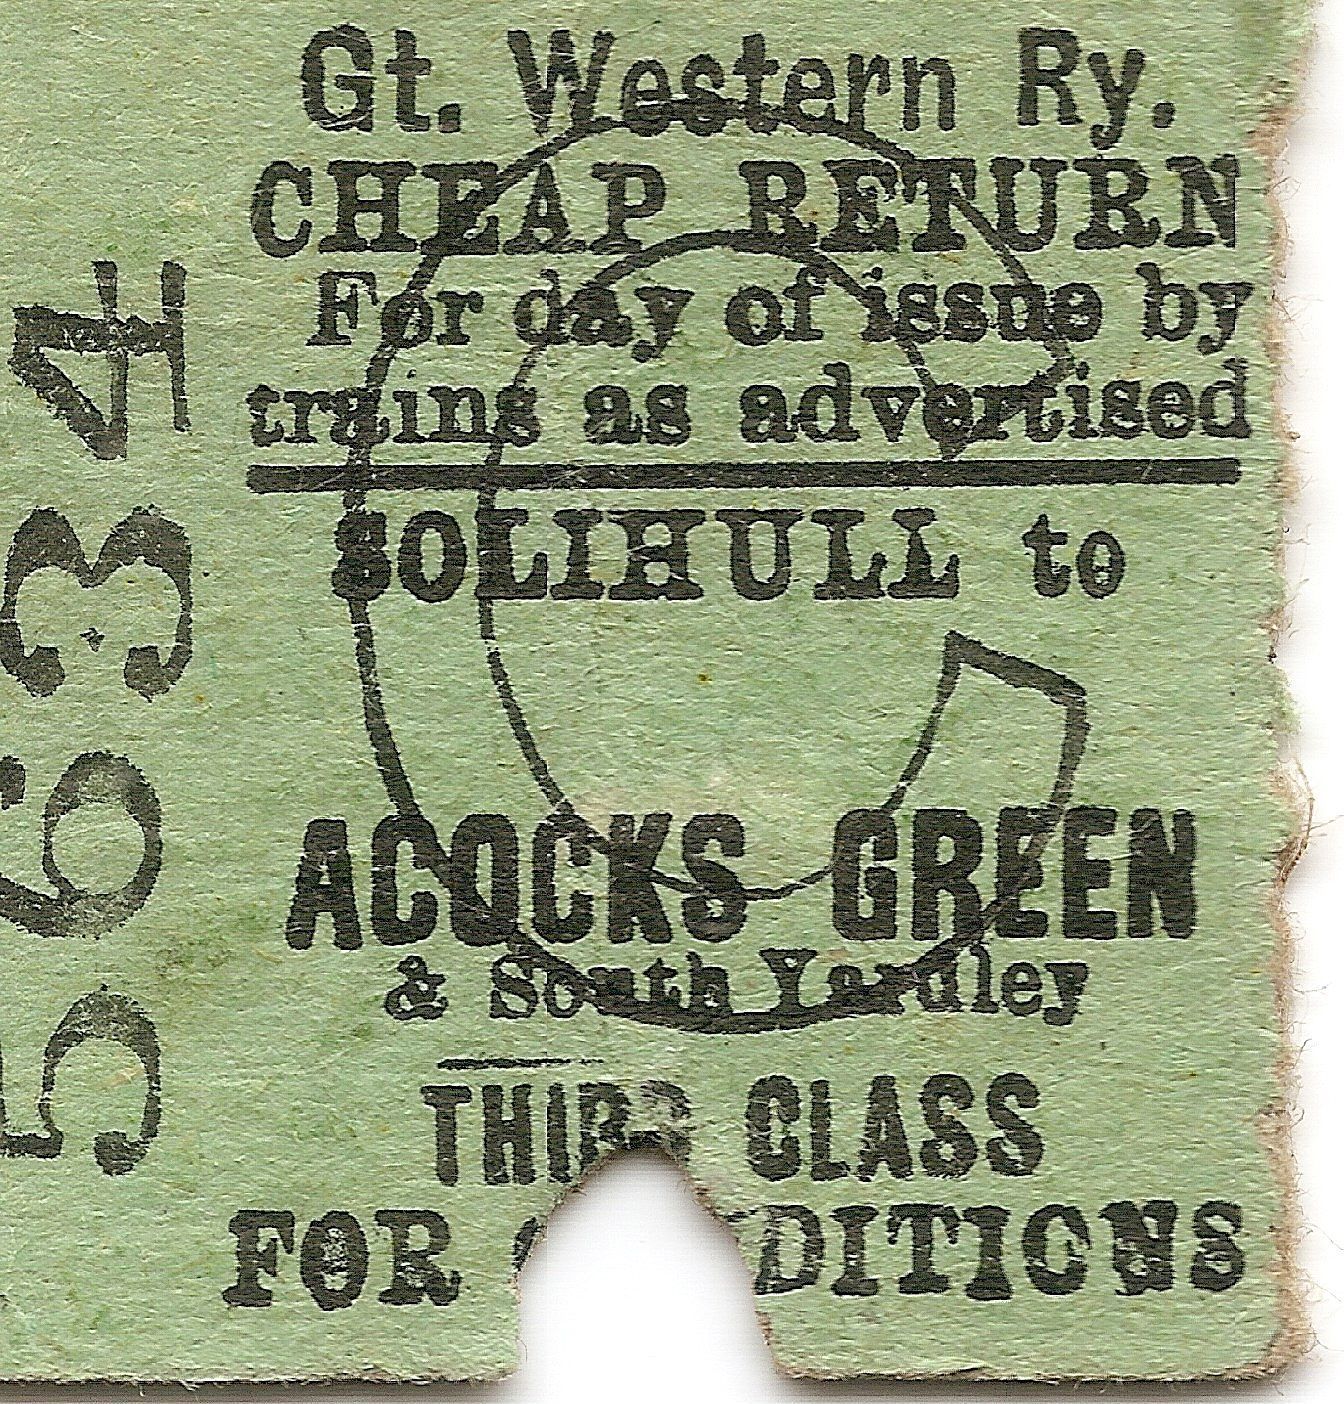 Gt. Western Ry.
CHEAP RETURN
For day of issue by
trains as advertised
SOLIHULL to
ACOCKS GREEN
& South Yardley
THIRD CLASS
FOR
5634
C